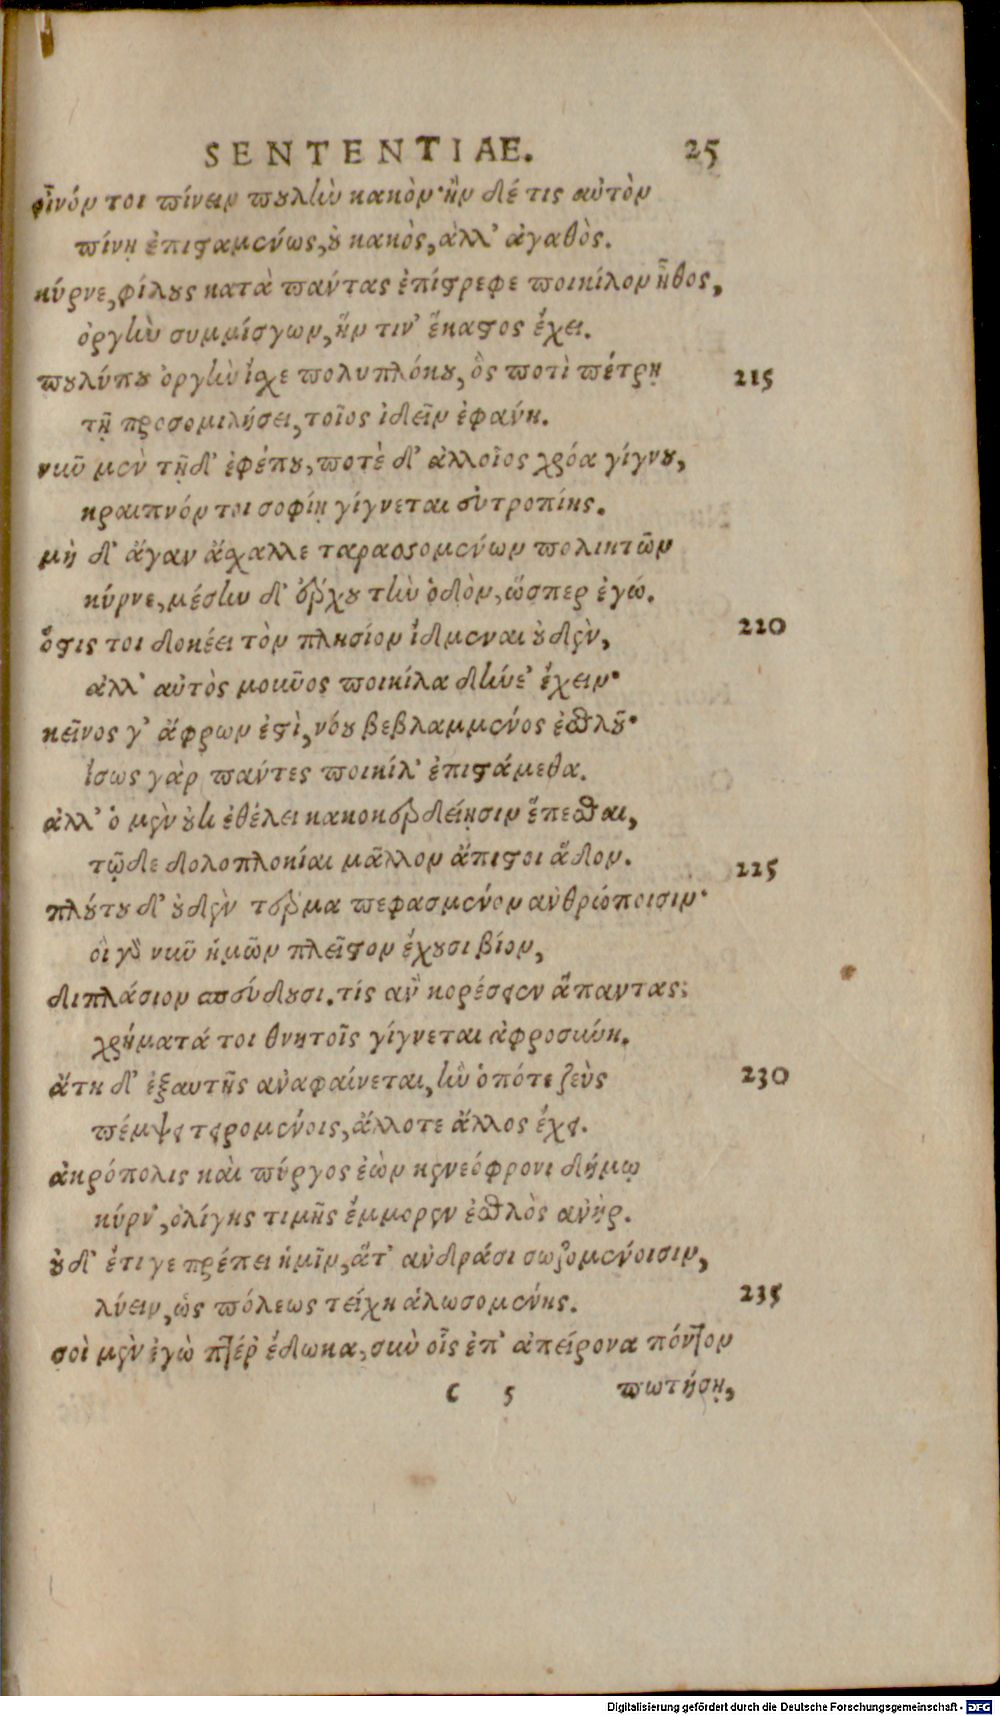 SENTENTIAE. 25
οἶνόν τοι πίνειν πουλὺν κακόν· ἢν δέ τις αὐτὸν
πίνῃ ἐπισταμένως, οὐ κακὸς, ἀλλ' ἀγαθός.
κύρνε, φίλους κατὰ πάντας ἐπίστρεφε ποικίλον ἦθος,
ὀργὴν συμμίσγων, ἥν τιν' ἕκαστος ἔχει.
πουλύπου ὀργὴν ἴσχε πολυπλόκου, ὃς ποτὶ πέτρῃ 215
τῇ προσομιλήσει, τοῖος ἰδεῖν ἐφάνη.
νῦν μὲν τῇδ' ἐφέπου, ποτὲ δ' ἀλλοῖος χρόα γίγνου,
κραιπνόν τοι σοφίη γίγνεται εὐτροπίης.
μὴ δ' ἄγαν ἄσχαλλε ταρασσομένων πολιητῶν
κύρνε, μέσην δ' ἔρχου τὴν ὁδὸν, ὥσπερ ἐγώ.
ὅστις τοι δοκέει τὸν πλησίον ἴδμεναι οὐδὲν, 220
ἀλλ' αὐτὸς μοῦνος ποικίλα δήνε' ἔχειν·
κεῖνος γ' ἄφρων ἐστὶ, νόου βεβλαμμένος ἐσθλοῦ·
ἴσως γὰρ πάντες ποικίλ' ἐπιστάμεθα.
ἀλλ' ὁ μὲν οὐκ ἐθέλει κακοκερδείῃσιν ἕπεσθαι,
τῷδε δολοπλοκίαι μᾶλλον ἄπιστοι ἅδον. 225
πλούτου δ' οὐδὲν τέρμα πεφασμένον ἀνθρώποισιν·
οἱ γὰρ νῦν ἡμῶν πλεῖστον ἔχουσι βίον,
διπλάσιον σπεύδουσι. τίς ἂν κορέσειεν ἅπαντας;
χρήματά τοι θνητοῖς γίγνεται ἀφροσύνη.
ἄτη δ' ἐξαυτῆς ἀναφαίνεται, ἣν ὁπότε ζεὺς 230
πέμψει τειρομένοις, ἄλλοτε ἄλλος ἔχει.
ἀκρόπολις καὶ πύργος ἐὼν κενεόφρονι δήμῳ
κύρν', ὀλίγης τιμῆς ἔμμορεν ἐσθλὸς ἀνήρ.
οὐδ' ἔτι γε πρέπει ἡμῖν, ἅτ' ἀνδράσι σωζομένοισιν,
λύειν, ὡς πόλεως τείχη ἁλωσομένης. 235
σοὶ μὲν ἐγὼ πτέρ' ἔδωκα, σὺν οἷς ἐπ' ἀπείρονα πόντον
c 5 πωτήσῃ,
Digitalisierung gefördert durch die Deutsche Forschungsgemeinschaft - DFG